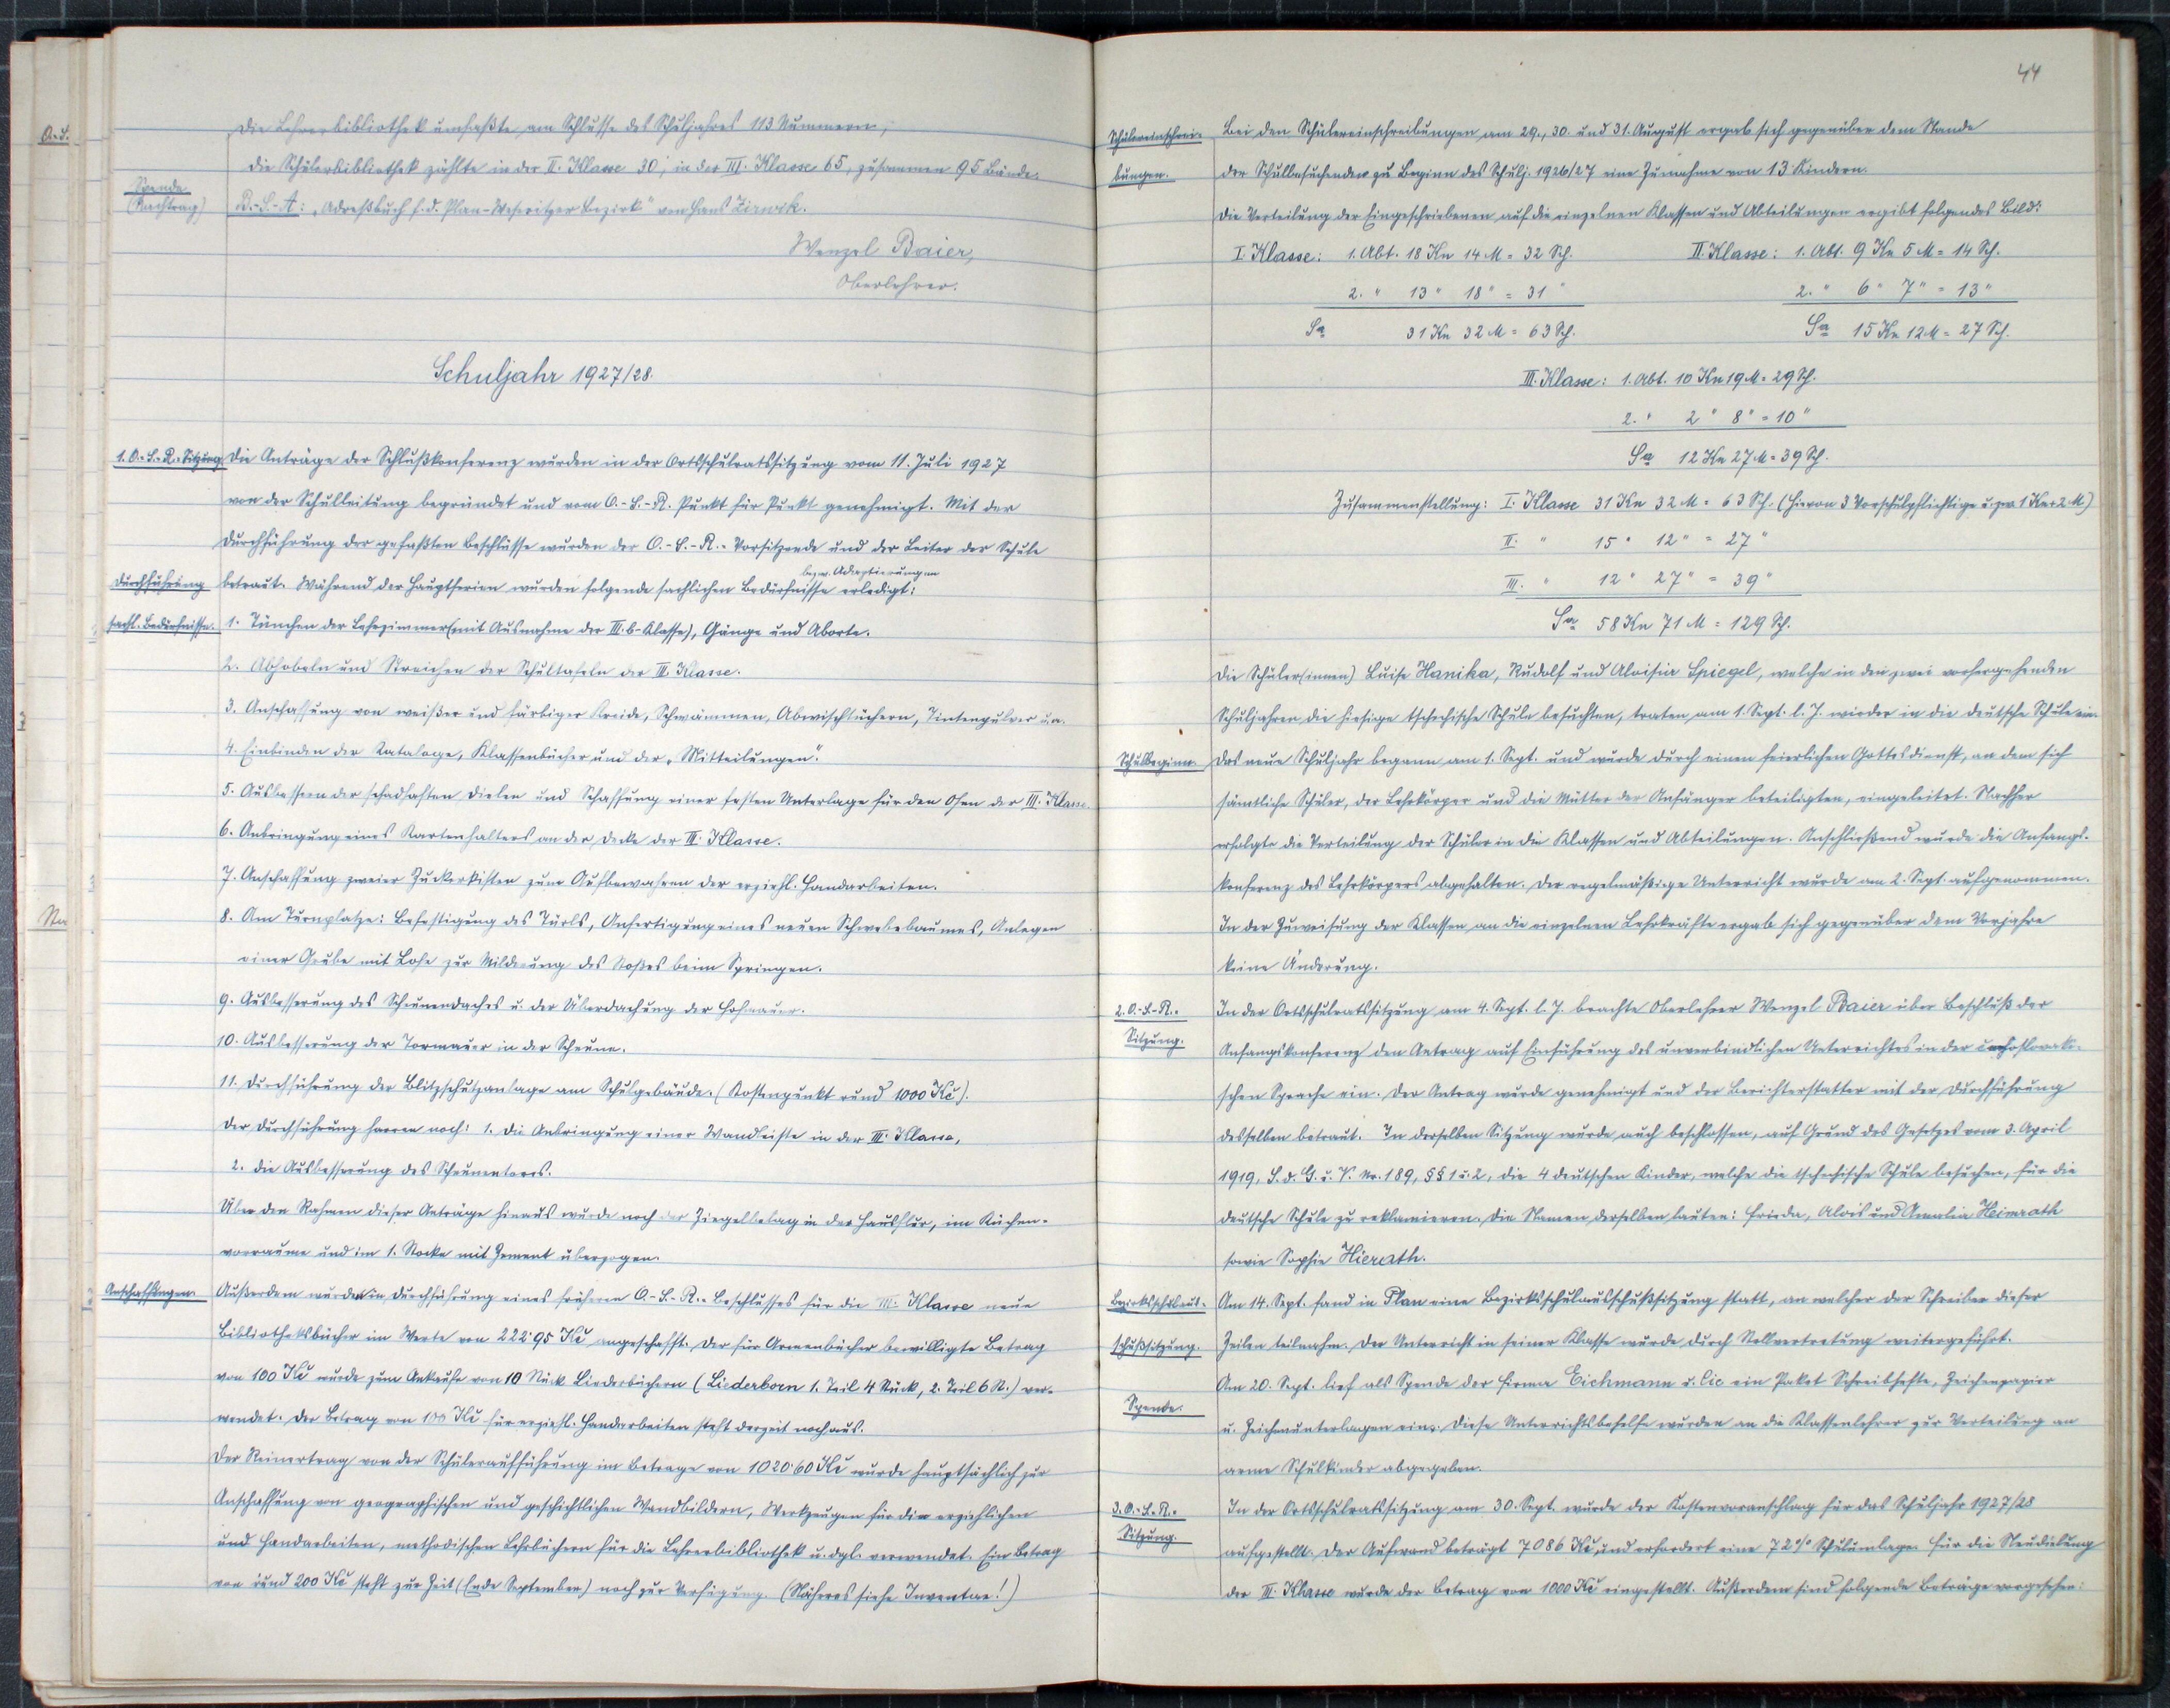 O.-S.
Die Lehrerbibliothek umfaßte am Schlusse des Schuljahres 113 Nummern,
die Schülerbibliothek zählte in der II. Klasse 30, in der III. Klasse 65, zusammen 95 Bände.
Spende
(Nachtrag)
D.-S.-A: „Adreßbuch f. d. Plan-Weseritzer Bezirk" von Hans Zirwik.
Wenzel Baier,
Oberlehrer.
Schuljahr 1927/28.
1. O.-S.-R.-Sitzung.
Die Anträge der Schlußkonferenz wurden in der Ortsschulratssitzung vom 11. Juli 1927
von der Schulleitung begründet und vom O.-S.-R. Punkt für Punkt genehmigt. Mit der
Durchführung der gefaßten Beschlüsse wurden der O.-S.-R.-Vorsitzende und der Leiter der Schule
bezw. Adaptierungen
Durchführung
betraut. Während der Hauptferien wurden folgende sachlichen Bedürfnisse erledigt:
sachl. Bedürfnisse.
1. Tünchen der Lehrzimmer (mit Ausnahme der III. b-Klasse), Gänge und Aborte.
2. Abhobeln und Streichen der Schultafeln der II. Klasse.
3. Anschaffung von weißer und färbiger Kreide, Schwämmen, Abwischtüchern, Tintenpulver u.a.
4. Einbinden der Kataloge, Klassenbücher und der „Mitteilungen".
5. Ausbessern der schadhaften Dielen und Schaffung einer festen Unterlage für den Ofen der III. Klasse.
6. Anbringung eines Kartenhalters an der Decke der III. Klasse.
7. Anschaffung zweier Zuckerkisten zum Aufbewahren der erziehl. Handarbeiten.
8. Am Turnplatze: Befestigung des Türls, Anfertigung eines neuen Schwebebaumes, Anlegen
einer Grube mit Lohe zur Milderung des Stoßes beim Springen.
9. Ausbesserung des Scheunendaches u. der Überdachung der Hofmauer.
10. Ausbesserung der Tormauer in der Scheune.
11. Durchführung der Blitzschutzanlage am Schulgebäude. (Kostenpunkt rund 1000 Kč).
Der Durchführung harren noch: 1. die Anbringung einer Wandleiste in der III. Klasse,
2. die Ausbesserung des Scheunentores.
Über den Rahmen dieser Anträge hinaus wurde noch der Ziegelbelag in der Hausflur, im Küchen-
vorraume und im 1. Stocke mit Zement überzogen.
Anschaffungen.
Außerdem wurden in Durchführung eines früheren O.-S.-R.-Beschlusses für die III. Klasse neue
Bibliotheksbücher im Werte von 222·95 Kč angeschafft. Der für Armenbücher bewilligte Betrag
von 100 Kč wurde zum Ankaufe von 10 Stück Liederbüchern (Liederborn 1. Teil 4 Stück, 2. Teil 6 St.) ver-
wendet. Der Betrag von 100 Kč für erziehl. Handarbeiten steht derzeit noch aus.
Der Reinertrag von der Schüleraufführung im Betrage von 1020·60 Kč wurde hauptsächlich zur
Anschaffung von geographischen und geschichtlichen Wandbildern, Werkzeugen für die erziehlichen
und Handarbeiten, methodischen Lehrbüchern für die Lehrerbibliothek u. dgl. verwendet. Ein Betrag
von rund 200 Kč steht zur Zeit (Ende September) noch zur Verfügung. (Näheres siehe Inventar!)
44
Schülereinschrei-
bungen.
Bei den Schülereinschreibungen am 29., 30. und 31. August ergab sich gegenüber dem Stande
der Schulbesuchenden zu Beginn des Schulj. 1926/27 eine Zunahme von 13 Kindern.
Die Verteilung der Eingeschriebenen auf die einzelnen Klassen und Abteilungen ergibt folgendes Bild:
I. Klasse: 1. Abt. 18 Kn 14 M = 32 Sch. II. Klasse: 1. Abt. 9 Kn 5 M = 14 Sch.
2. " 13 " 18 " = 31 " 2. " 6 " 7 " = 13 "
Sa 31 Kn 32 M = 63 Sch. Sa 15 Kn 12 M = 27 Sch.
III. Klasse: 1. Abt. 10 Kn 19 M = 29 Sch.
2. " 2 " 8 " = 10 "
Sa 12 Kn 27 M = 39 Sch.
Zusammenstellung: I. Klasse 31 Kn 32 M = 63 Sch. (Hievon 3 Vorschulpflichtige u. zw. 1 Kn + 2 M)
II. " 15 " 12 " = 27 "
III. " 12 " 27 " = 39 "
Sa 58 Kn 71 M = 129 Sch.
Die Schüler(innen) Luise Hanika, Rudolf und Aloisia Spiegel, welche in den zwei vorhergehenden
Schuljahren die hiesige tschechische Schule besuchten, traten am 1. Sept. l. J. wieder in die deutsche Schule ein.
Schulbeginn.
Das neue Schuljahr begann am 1. Sept. und wurde durch einen feierlichen Gottesdienst, an dem sich
sämtliche Schüler, der Lehrkörper und die Mütter der Anfänger beteiligten, eingeleitet. Nachher
erfolgte die Verteilung der Schüler in die Klassen und Abteilungen. Anschließend wurde die Anfangs-
konferenz des Lehrkörpers abgehalten. Der regelmäßige Unterricht wurde am 2. Sept. aufgenommen.
In der Zuweisung der Klassen an die einzelnen Lehrkräfte ergab sich gegenüber dem Vorjahre
keine Änderung.
2. O.-S.-R.-
Sitzung.
In der Ortsschulratssitzung am 4. Sept. l. J. brachte Oberlehrer Wenzel Baier über Beschluß der
Anfangskonferenz den Antrag auf Einführung des unverbindlichen Unterrichtes in der čechoslovaki-
schen Sprache ein. Der Antrag wurde genehmigt und der Berichterstatter mit der Durchführung
desselben betraut. In derselben Sitzung wurde auch beschlossen, auf Grund des Gesetzes vom 3. April
1919, S. d. G. u. V. Nr. 189, §§ 1 u. 2, die 4 deutschen Kinder, welche die tschechische Schule besuchen, für die
deutsche Schule zu reklamieren. Die Namen derselben lauten: Frieda, Alois und Amalia Heimrath
sowie Sophie Hierath.
Bezirksschulaus-
schußsitzung.
Am 14. Sept. fand in Plan eine Bezirksschulausschußsitzung statt, an welcher der Schreiber dieser
Zeilen teilnahm. Der Unterricht in seiner Klasse wurde durch Stellvertretung weitergeführt.
Spende.
Am 20. Sept. lief als Spende der Firma Eichmann u. Cie ein Paket Schreibhefte, Zeichenpapier
u. Zeichenunterlagen ein. Diese Unterrichtsbehelfe wurden an die Klassenlehrer zur Verteilung an
arme Schulkinder abgegeben.
3. O.-S.-R.-
Sitzung.
In der Ortsschulratssitzung am 30. Sept. wurde der Kostenvoranschlag für das Schuljahr 1927/28
aufgestellt. Der Aufwand beträgt 7086 Kč und erfordert eine 72% Schulumlage. Für die Neudielung
der III. Klasse wurde der Betrag von 1000 Kč eingestellt. Außerdem sind folgende Beträge vorgesehen: